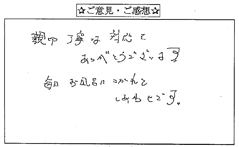 ☆ご意見・ご感想☆
親切 丁寧な 対応で
ありがとうございます
毎日 お風呂に つかれて
しあわせです。